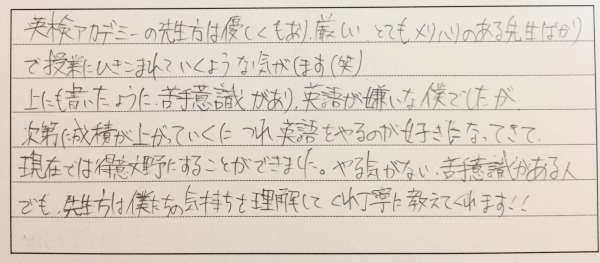 英検アカデミーの先生方は優しくもあり、厳しい とてもメリハリのある先生ばかり
で授業にひきこまれていくような気がします(笑)
上にも書いたように、苦手意識があり、英語が嫌いな僕でしたが、
次第に成積が上がっていくに つれ、英語をやるのが好きになってきて、
現在では得意分野にすることができました。やる気がない、苦手意識がある人
でも、先生方は僕たちの気持ちを理解して くれ丁寧に教えてくれます!!